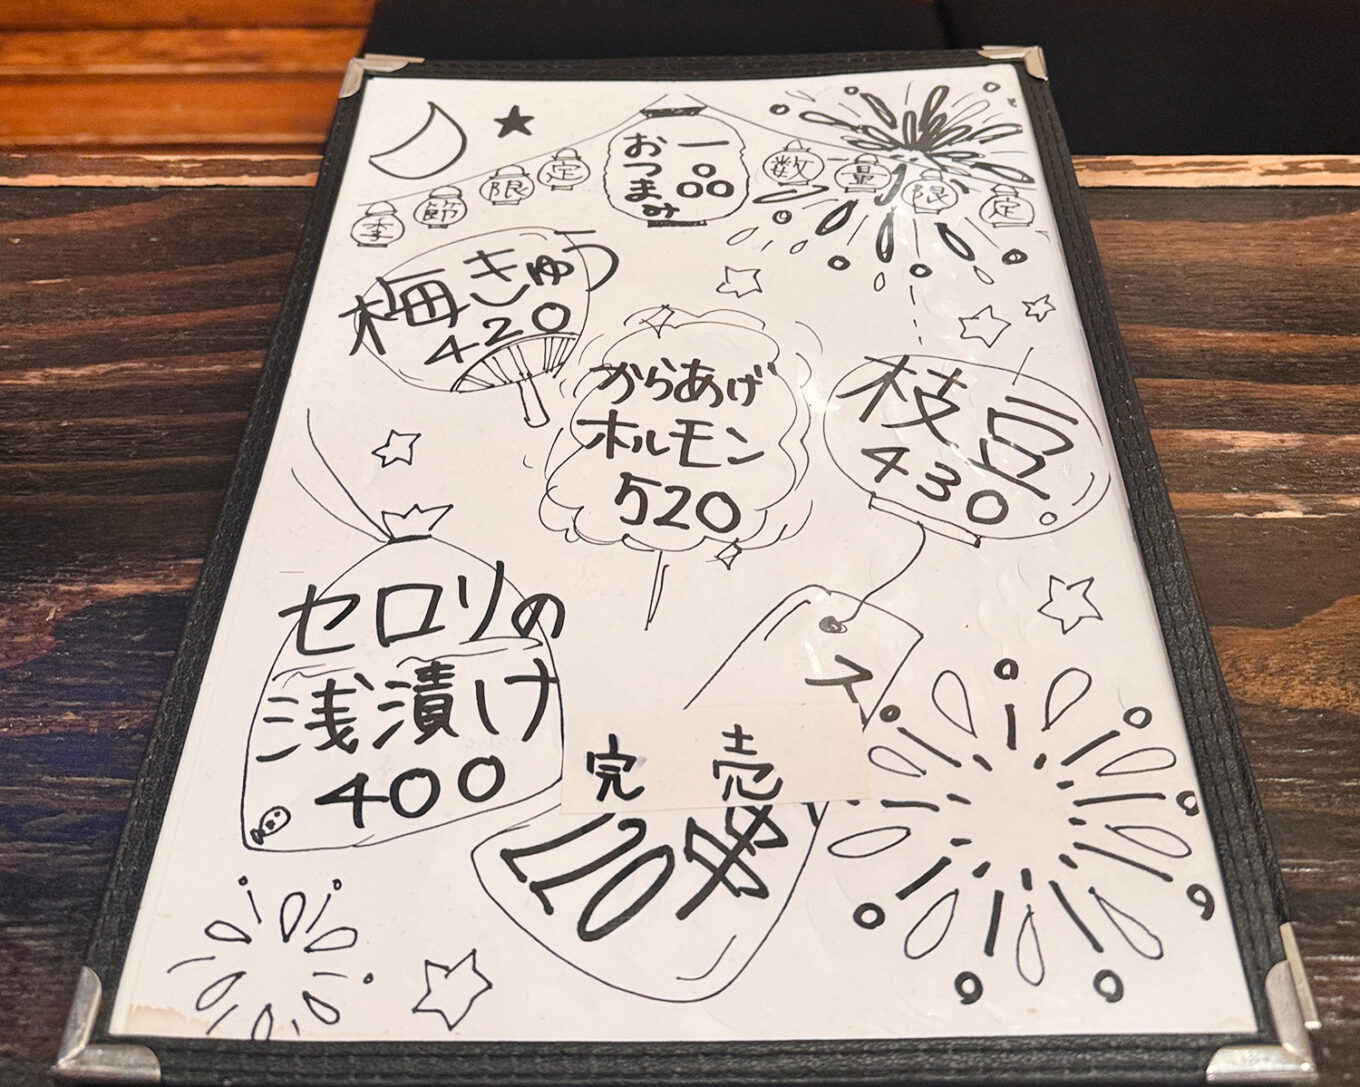 季節限定
一品
おつまみ
数量限定
梅きゅう
420
からあげ
ホルモン
520
枝豆
430
セロリの
浅漬け
400
ス
完売